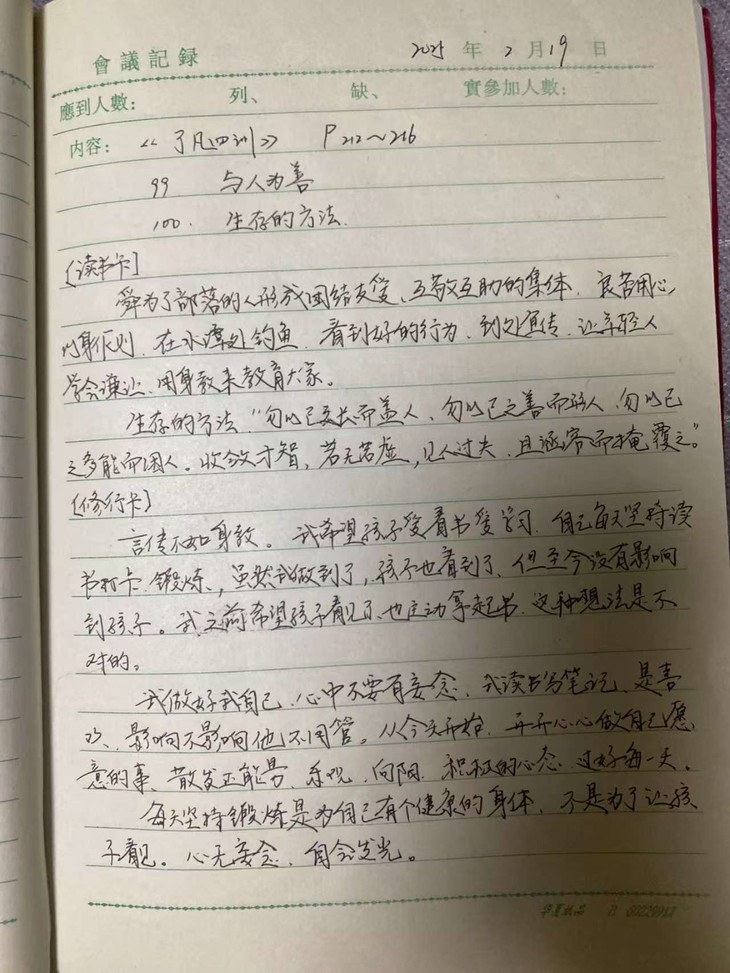 會議記録 2025 年 2 月 19 日
應到人數： 列、 缺、 實參加人數：
内容： 《了凡四训》 P212～216
99 与人为善
100. 生存的方法.
[读书卡]
舜为了部落的人形成团结友爱、互敬互助的集体，良苦用心，
以身作则，在水潭处钓鱼，看到好的行为，到处宣传，让年轻人
学会谦让，用身教来教育大家。
生存的方法“勿以己之长而盖人，勿以己之善而形人，勿以己
之多能而困人。收敛才智，若无若虚，见人过失，且涵容而掩覆之。”
[修行卡]
言传不如身教。我希望孩子爱看书爱学习，自己每天坚持读
书打卡，锻炼，虽然我做到了，孩子也看到了，但至今没有影响
到孩子。我之前希望孩子看见了，也主动拿起书，这种想法是不
对的。
我做好我自己，心中不要有妄念，我读书写笔记，是喜
欢、影响不影响他不用管。从今天开始，开开心心做自己愿
意的事、散发正能量、乐观、向阳、积极的心态，过好每一天。
每天坚持锻炼是为自己有个健康的身体，不是为了让孩
子看见。心无妄念，自会发光。